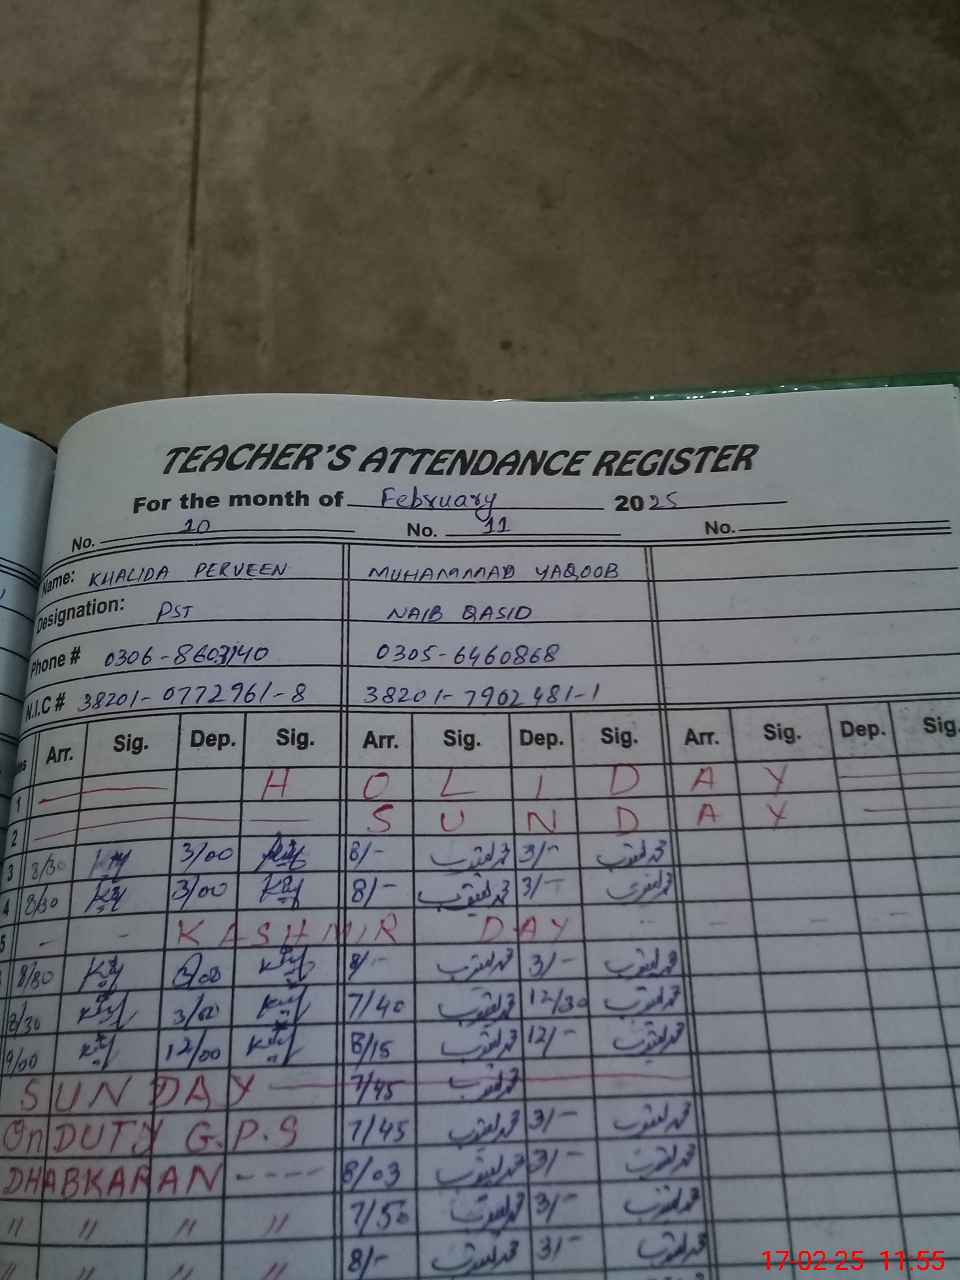 TEACHER'S ATTENDANCE REGISTER
For the month of February 2025
No. 10 No. 11 No.
Name: KHALIDA PERVEEN MUHAMMAD YAQOOB
Designation: PST NAIB QASID
Phone # 0306-8603140 0305-6460868
N.I.C # 38201-0772961-8 38201-7902481-1
Arr. Sig. Dep. Sig. Arr. Sig. Dep. Sig. Arr. Sig. Dep. Sig.
1 H O L I D A Y
2 S U N D A Y
3 8/30 3/00 8/- محمد یعقوب 3/- محمد یعقوب
4 8/30 3/00 8/- محمد یعقوب 3/- محمد یعقوب
5 - - KASHMIR DAY - - - -
8/30 3/00 8/- محمد یعقوب 3/- محمد یعقوب
8/30 3/00 7/40 محمد یعقوب 12/30 محمد یعقوب
9/00 12/00 8/15 محمد یعقوب 12/- محمد یعقوب
SUNDAY 7/45 محمد یعقوب
On DUTY G.P.S 7/45 محمد یعقوب 3/- محمد یعقوب
DHABKARAN ---- 8/03 محمد یعقوب 3/- محمد یعقوب
" " " " 7/50 محمد یعقوب 3/- محمد یعقوب
" " " " 8/- محمد یعقوب 3/- محمد یعقوب
17-02-25 11:55